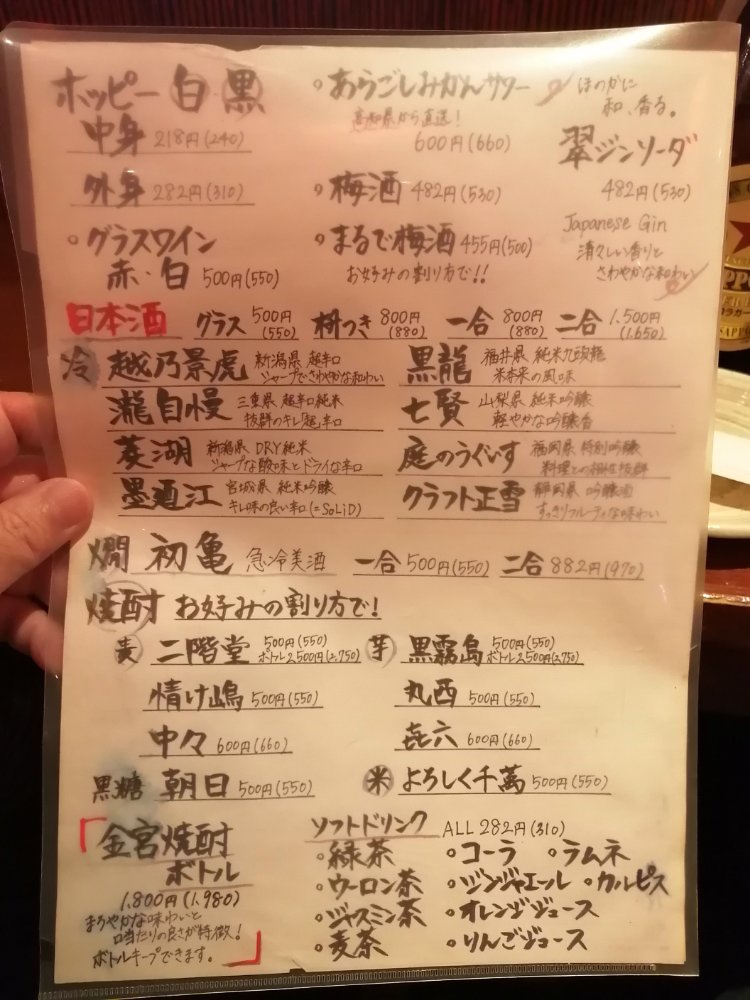 ホッピー 白 黒
中身 218円(240)
外身 282円(310)
・グラスワイン
赤・白 500円(550)
・あらごしみかんサワー
高知県から直送!
600円(660)
・梅酒 482円(530)
・まるで梅酒 455円(500)
お好みの割り方で!!
ほのかに
和、香る。
翠ジンソーダ
482円(530)
Japanese Gin
清々しい香りと
さわやかな味わい
日本酒 グラス 500円(550) 枡つき 800円(880) 一合 800円(880) 二合 1.500円(1.650)
冷 越乃景虎 新潟県 超辛口
シャープでさわやかな味わい
瀧自慢 三重県 超辛口純米
抜群のキレ「超」辛口
菱湖 新潟県 DRY純米
シャープな酸味とドライな辛口
墨廼江 宮城県 純米吟醸
キレ味の良い辛口(=SoLiD)
黒龍 福井県 純米九頭龍
米本来の風味
七賢 山梨県 純米吟醸
軽やかな吟醸香
庭のうぐいす 福岡県 特別吟醸
料理との相性抜群
クラフト正雪 静岡県 吟醸酒
すっきりフルーティな味わい
燗 初亀 急冷美酒 一合 500円(550) 二合 882円(970)
焼酎 お好みの割り方で!
麦 二階堂 500円(550)
ボトル2,500円(2,750)
情け嶋 500円(550)
中々 600円(660)
黒糖 朝日 500円(550)
芋 黒霧島 500円(550)
ボトル2,500円(2,750)
丸西 500円(550)
㐂六 600円(660)
米 よろしく千萬 500円(550)
「金宮焼酎
ボトル
1.800円(1.980)
まろやかな味わいと
口当たりの良さが特徴!
ボトルキープできます。」
ソフトドリンク ALL 282円(310)
・緑茶 ・コーラ ・ラムネ
・ウーロン茶 ・ジンジャエール ・カルピス
・ジャスミン茶 ・オレンジジュース
・麦茶 ・りんごジュース